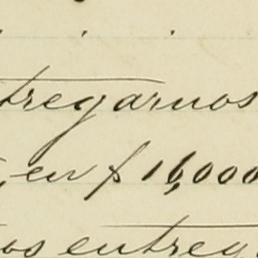 tregarnos
, en $ 16,000
os entreg